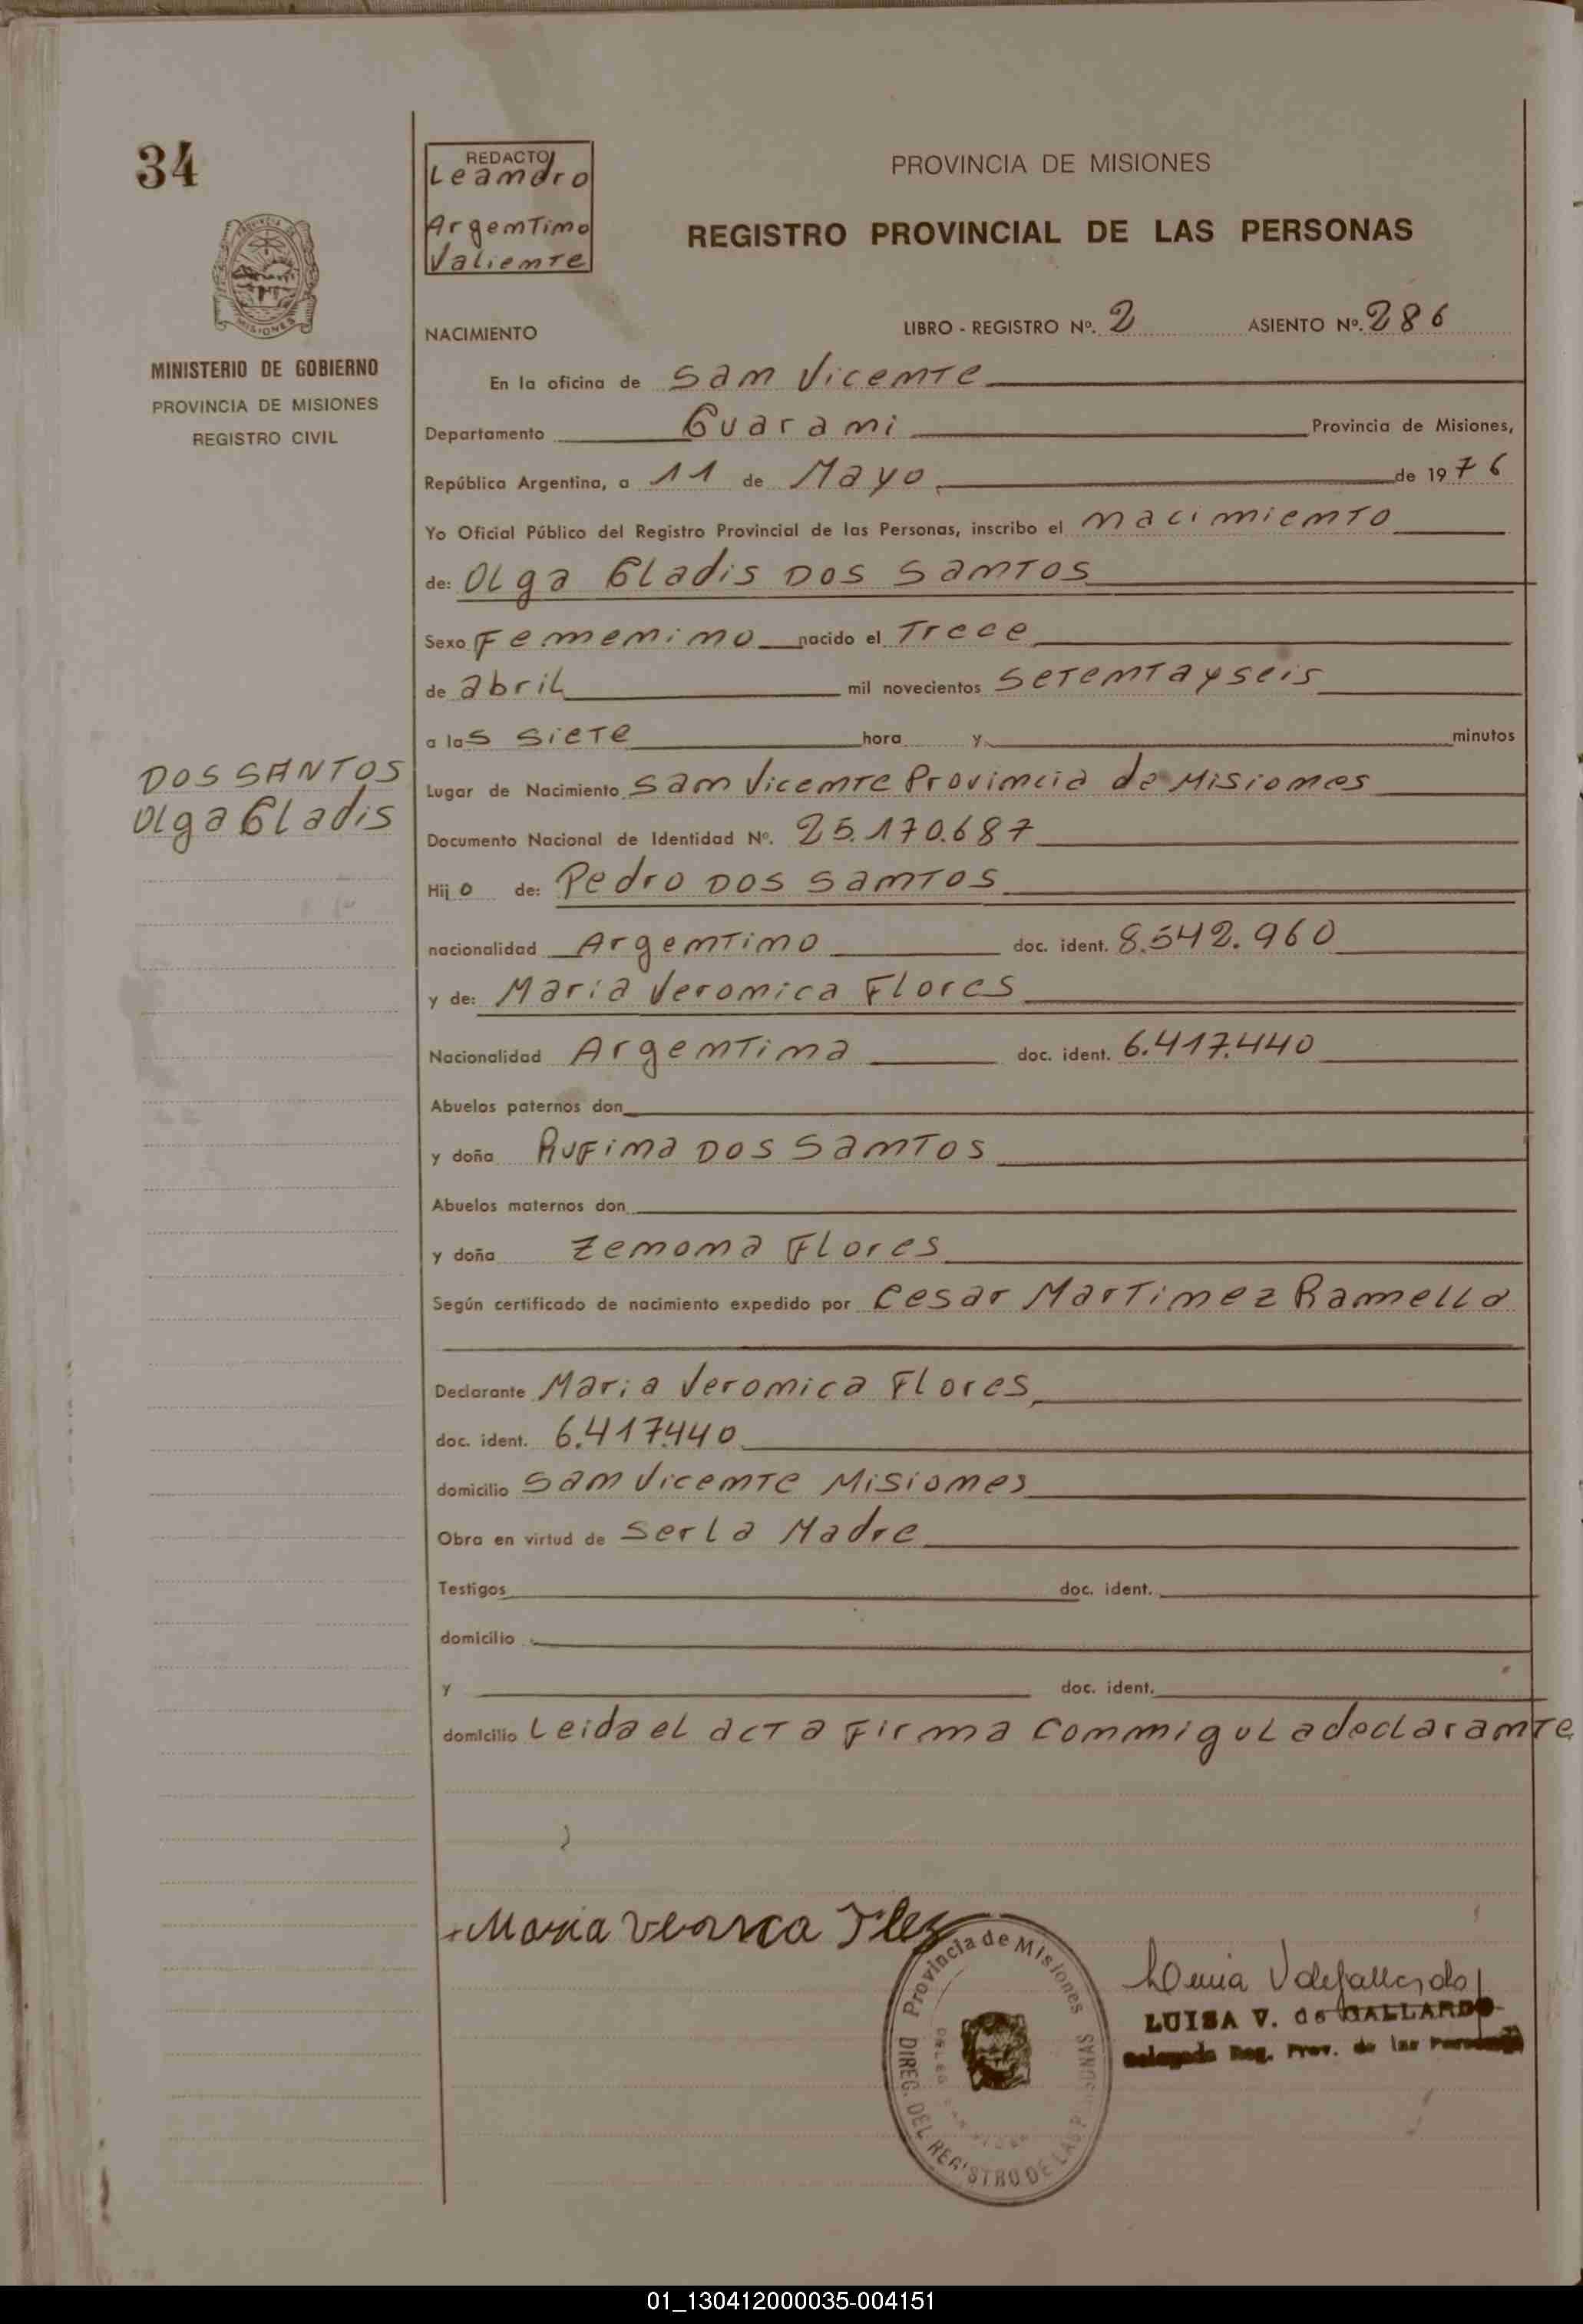 34
REDACTO
Leandro
Argentino
Valiente
PROVINCIA DE MISIONES
REGISTRO PROVINCIAL DE LAS PERSONAS
MISIONES
MINISTERIO DE GOBIERNO
PROVINCIA DE MISIONES
REGISTRO CIVIL
NACIMIENTO
LIBRO - REGISTRO Nº. 2 ASIENTO Nº. 286
En la oficina de San Vicente
Departamento Guarani Provincia de Misiones,
República Argentina, a 11 de Mayo de 1976
Yo Oficial Público del Registro Provincial de las Personas, inscribo el nacimiento
de: Olga Gladis DOS SANTOS
Sexo Femenino nacido el Trece
de abril mil novecientos Setentayseis
a las siete hora y minutos
DOS SANTOS
Olga Gladis
Lugar de Nacimiento San Vicente Provincia de Misiones
Documento Nacional de Identidad Nº. 25.170.687
Hijo de: Pedro DOS SANTOS
nacionalidad Argentino doc. ident. 8.542.960
y de: Maria Veronica Flores
Nacionalidad Argentina doc. ident. 6.417.440
Abuelos paternos don
y doña Rufina DOS SANTOS
Abuelos maternos don
y doña Zenona Flores
Según certificado de nacimiento expedido por Cesar Martinez Ramella
Declarante Maria Veronica Flores
doc. ident. 6.417.440
domicilio San Vicente Misiones
Obra en virtud de ser la Madre
Testigos doc. ident.
domicilio
y doc. ident.
domicilio Leida el acta firma conmigo la declarante
Maria
Provincia de Misiones
DIREG. DEL REGISTRO DE LAS PERSONAS
LUISA V. de GALLARDO
Delegada Reg. Prov. de las Personas
01_130412000035-004151